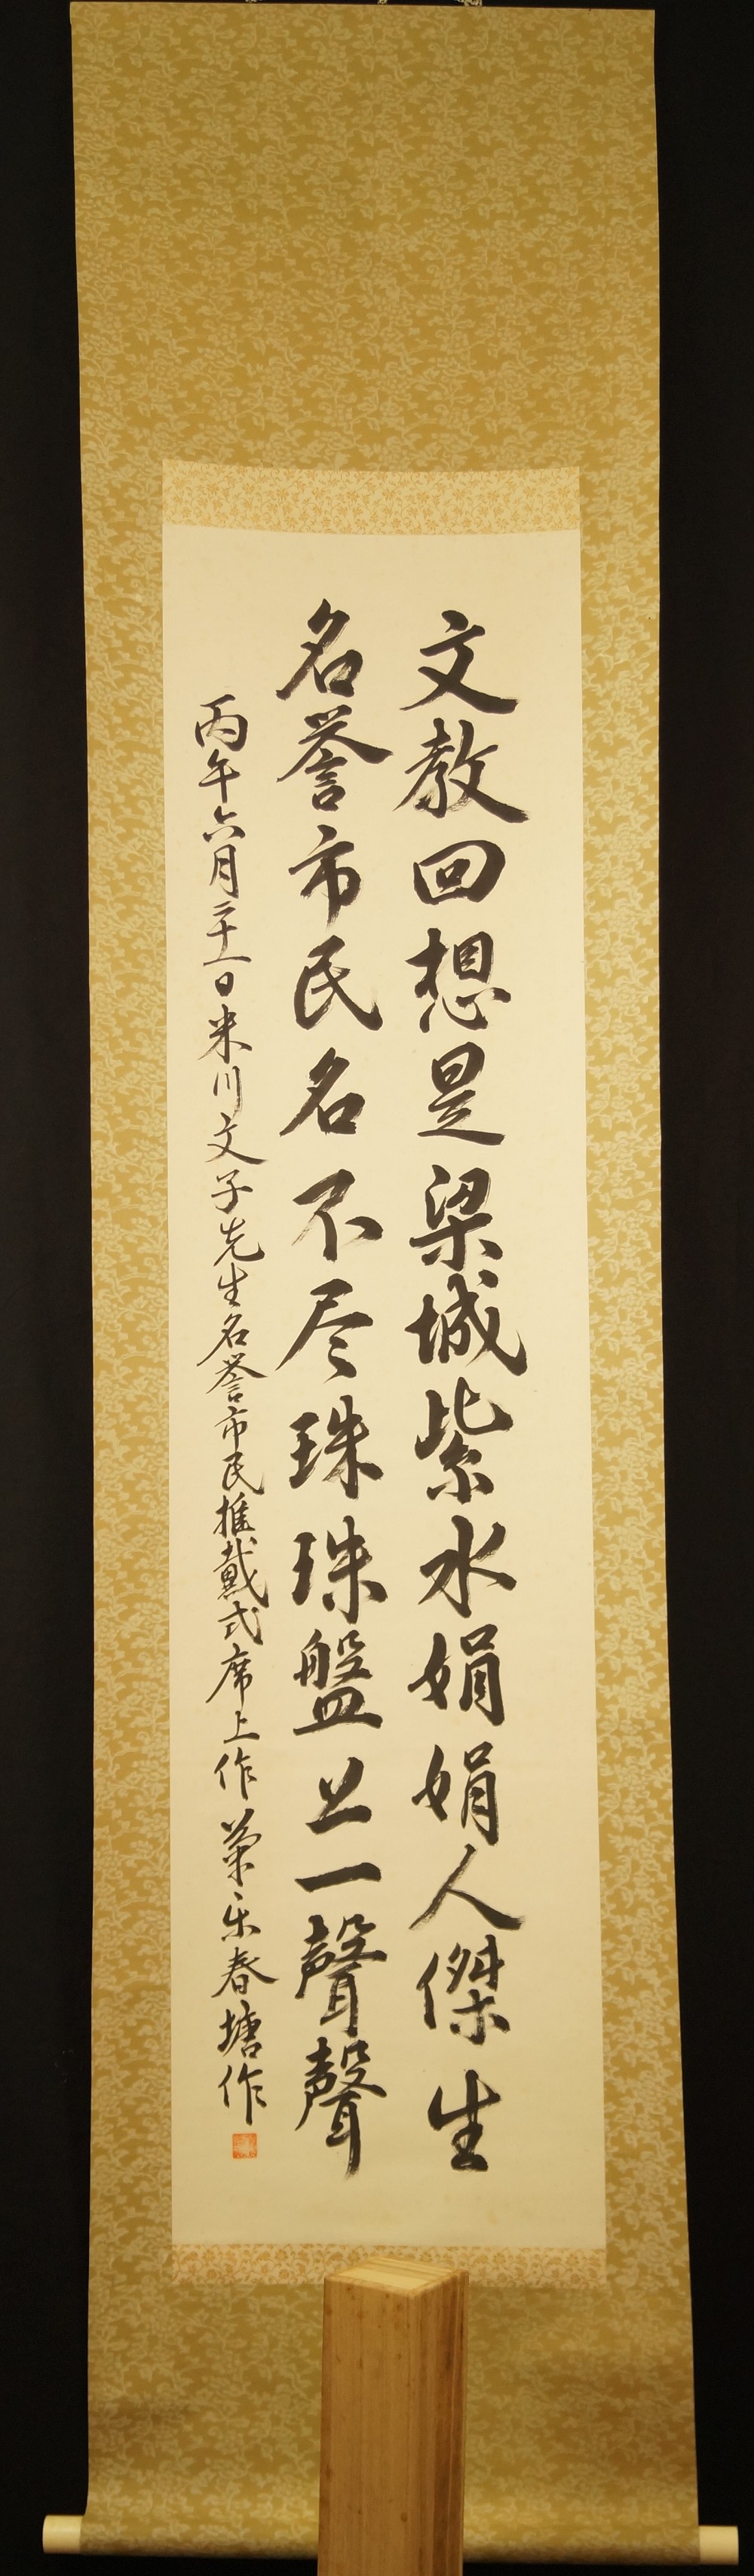 文教回想是梁城紫水娟娟人傑生
名誉市民名不尽珠珠盤上一聲聲
丙午六月二十一日米川文子先生名誉市民推戴式席上作 菊乐春塘作